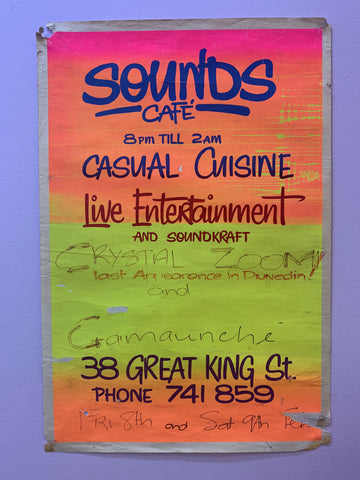 SOUNDS
CAFÉ
8PM TILL 2AM
CASUAL CUISINE
Live Entertainment
AND SOUNDKRAFT
CRYSTAL ZOOM!
last Appearance in Dunedin
and
Gamaunché
38 GREAT KING St.
PHONE 741 859
FRI 8th and Sat 9th Feb